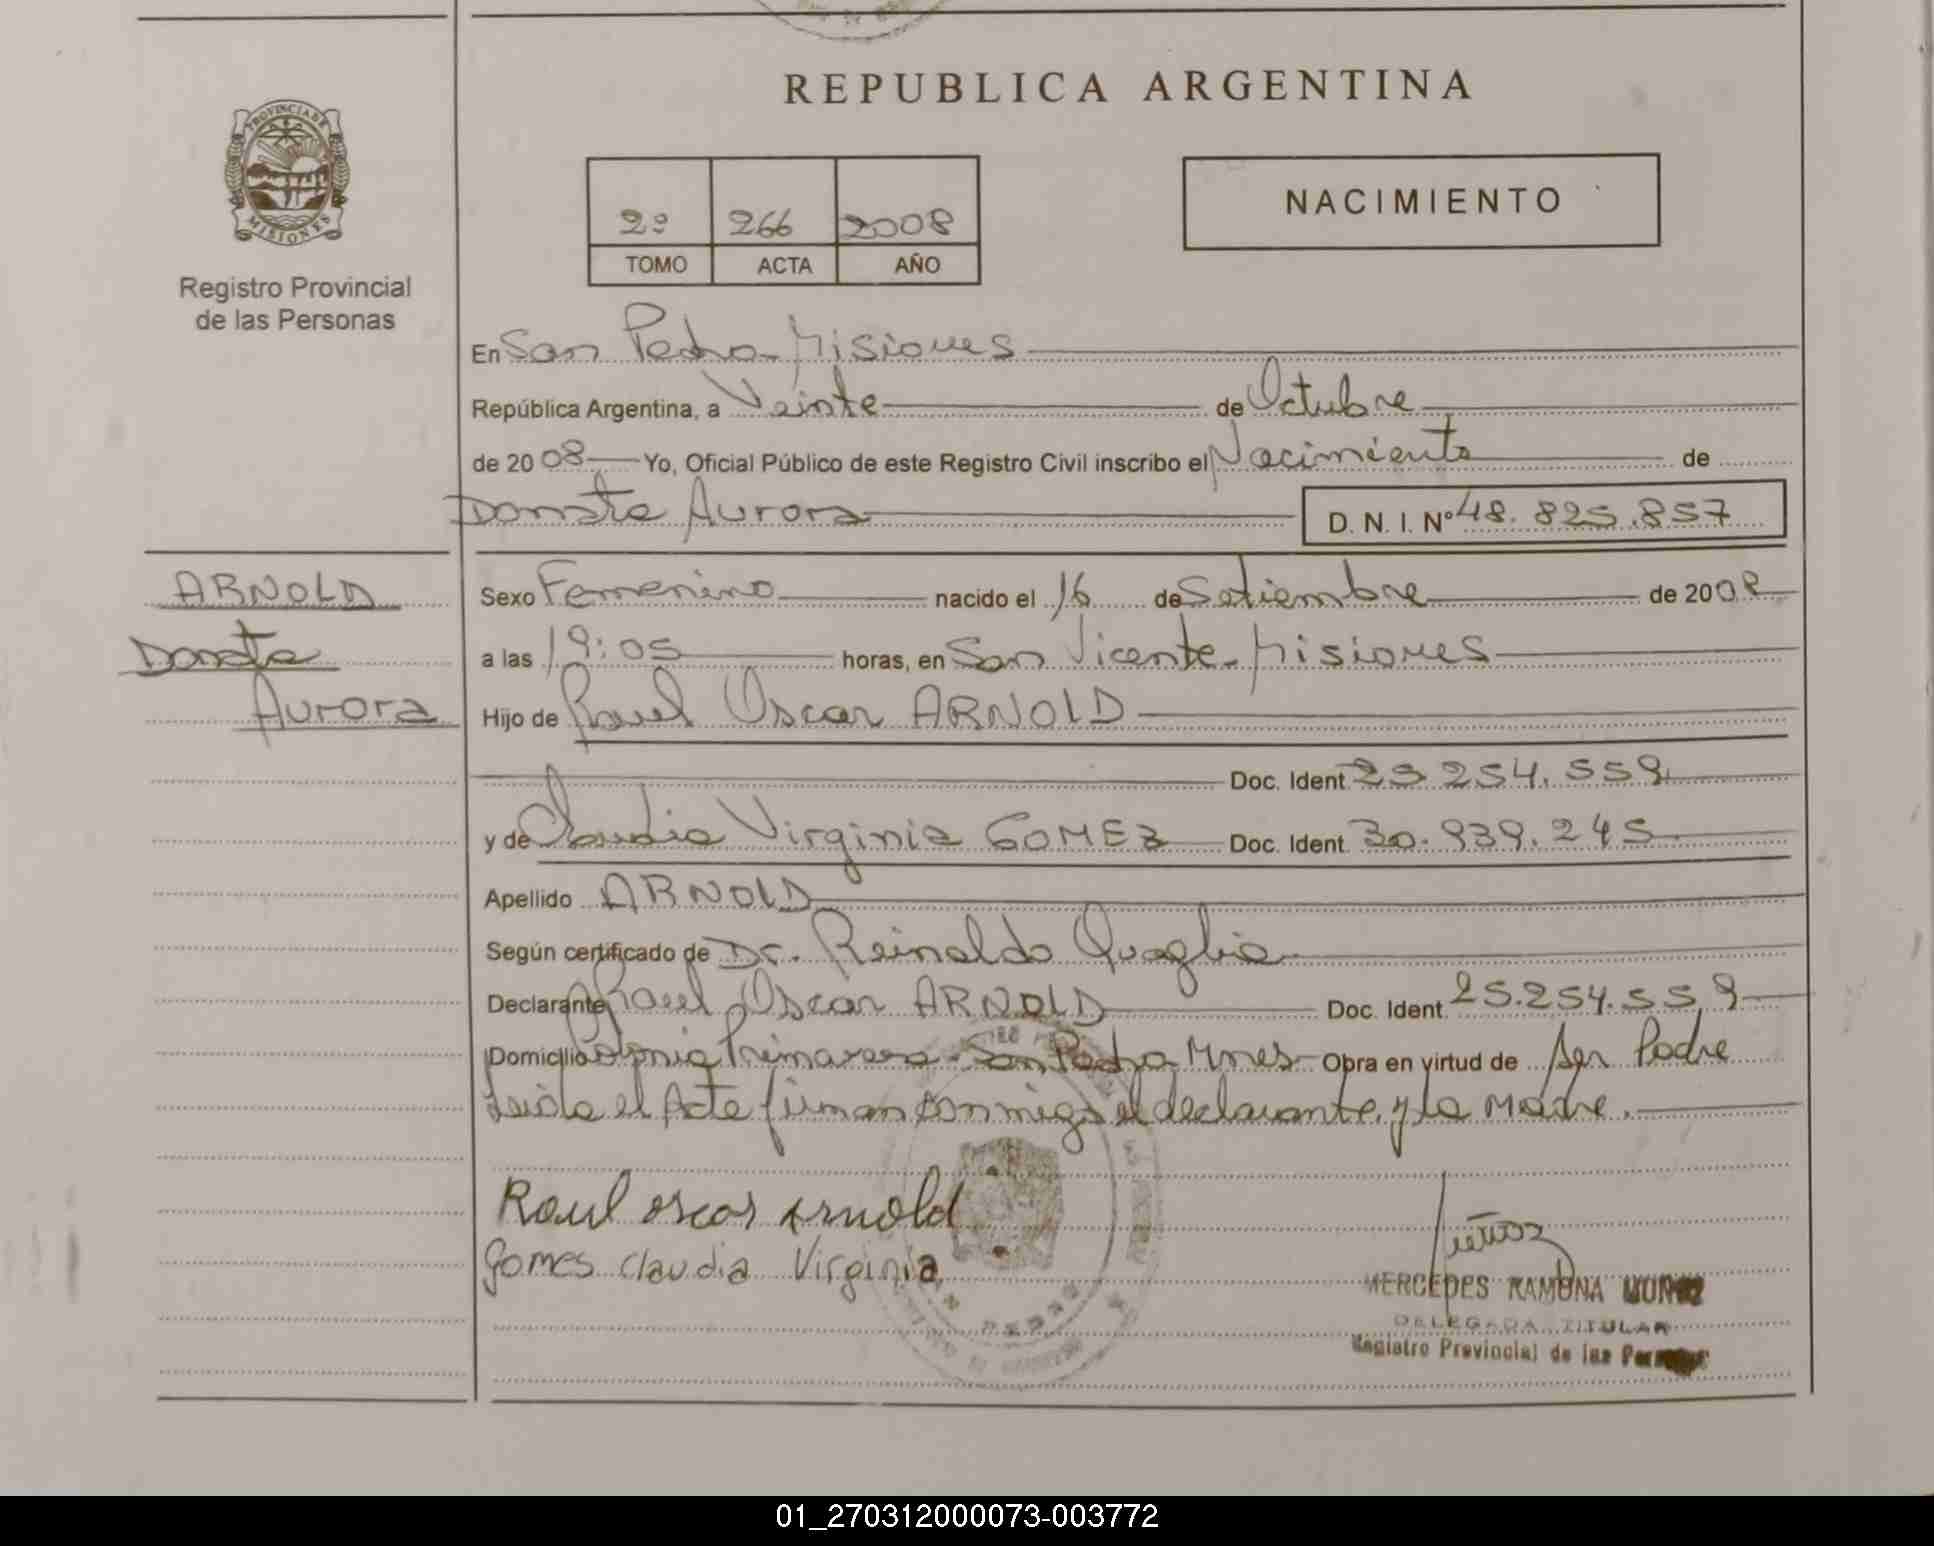 REPUBLICA ARGENTINA
PROVINCIA DE
MISIONES
Registro Provincial
de las Personas
2º 266 2008
TOMO ACTA AÑO
NACIMIENTO
En San Pedro Misiones
República Argentina, a Veinte de Octubre
de 2008 Yo, Oficial Público de este Registro Civil inscribo el Nacimiento de
Donata Aurora D. N. I. Nº 48.825.857
ARNOLD
Donata
Aurora
Sexo Femenino nacido el 16 de Setiembre de 2008
a las 19:05 horas, en San Vicente Misiones
Hijo de Raul Oscar ARNOLD
Doc. Ident. 25.254.559
y de Claudia Virginia GOMEZ Doc. Ident. 30.939.245
Apellido ARNOLD
Según certificado de Dr. Reinaldo Quaglia
Declarante Raul Oscar ARNOLD Doc. Ident. 25.254.559
Domicilio Colonia Primavera - San Pedro Mnes Obra en virtud de ser Padre
Leida el Acta firman conmigo el declarante y la Madre.
Raul oscar Arnold
Gomes Claudia Virginia
MERCEDES RAMONA MUÑOZ
DELEGADA TITULAR
Registro Provincial de las Personas
01_270312000073-003772